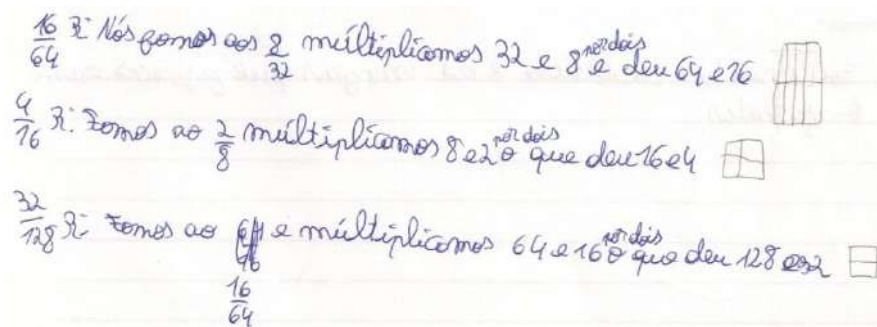 16/64 R: Nós fomos aos 8/32 múltiplicamos 32 e 8 por dois e deu 64 e 16
4/16 R: Fomos ao 2/8 múltiplicamos 8 e 2 por dois o que deu 16 e 4
32/128 R: Fomos ao 16/64 e múltiplicamos 64 e 16 por dois o que deu 128 e 32